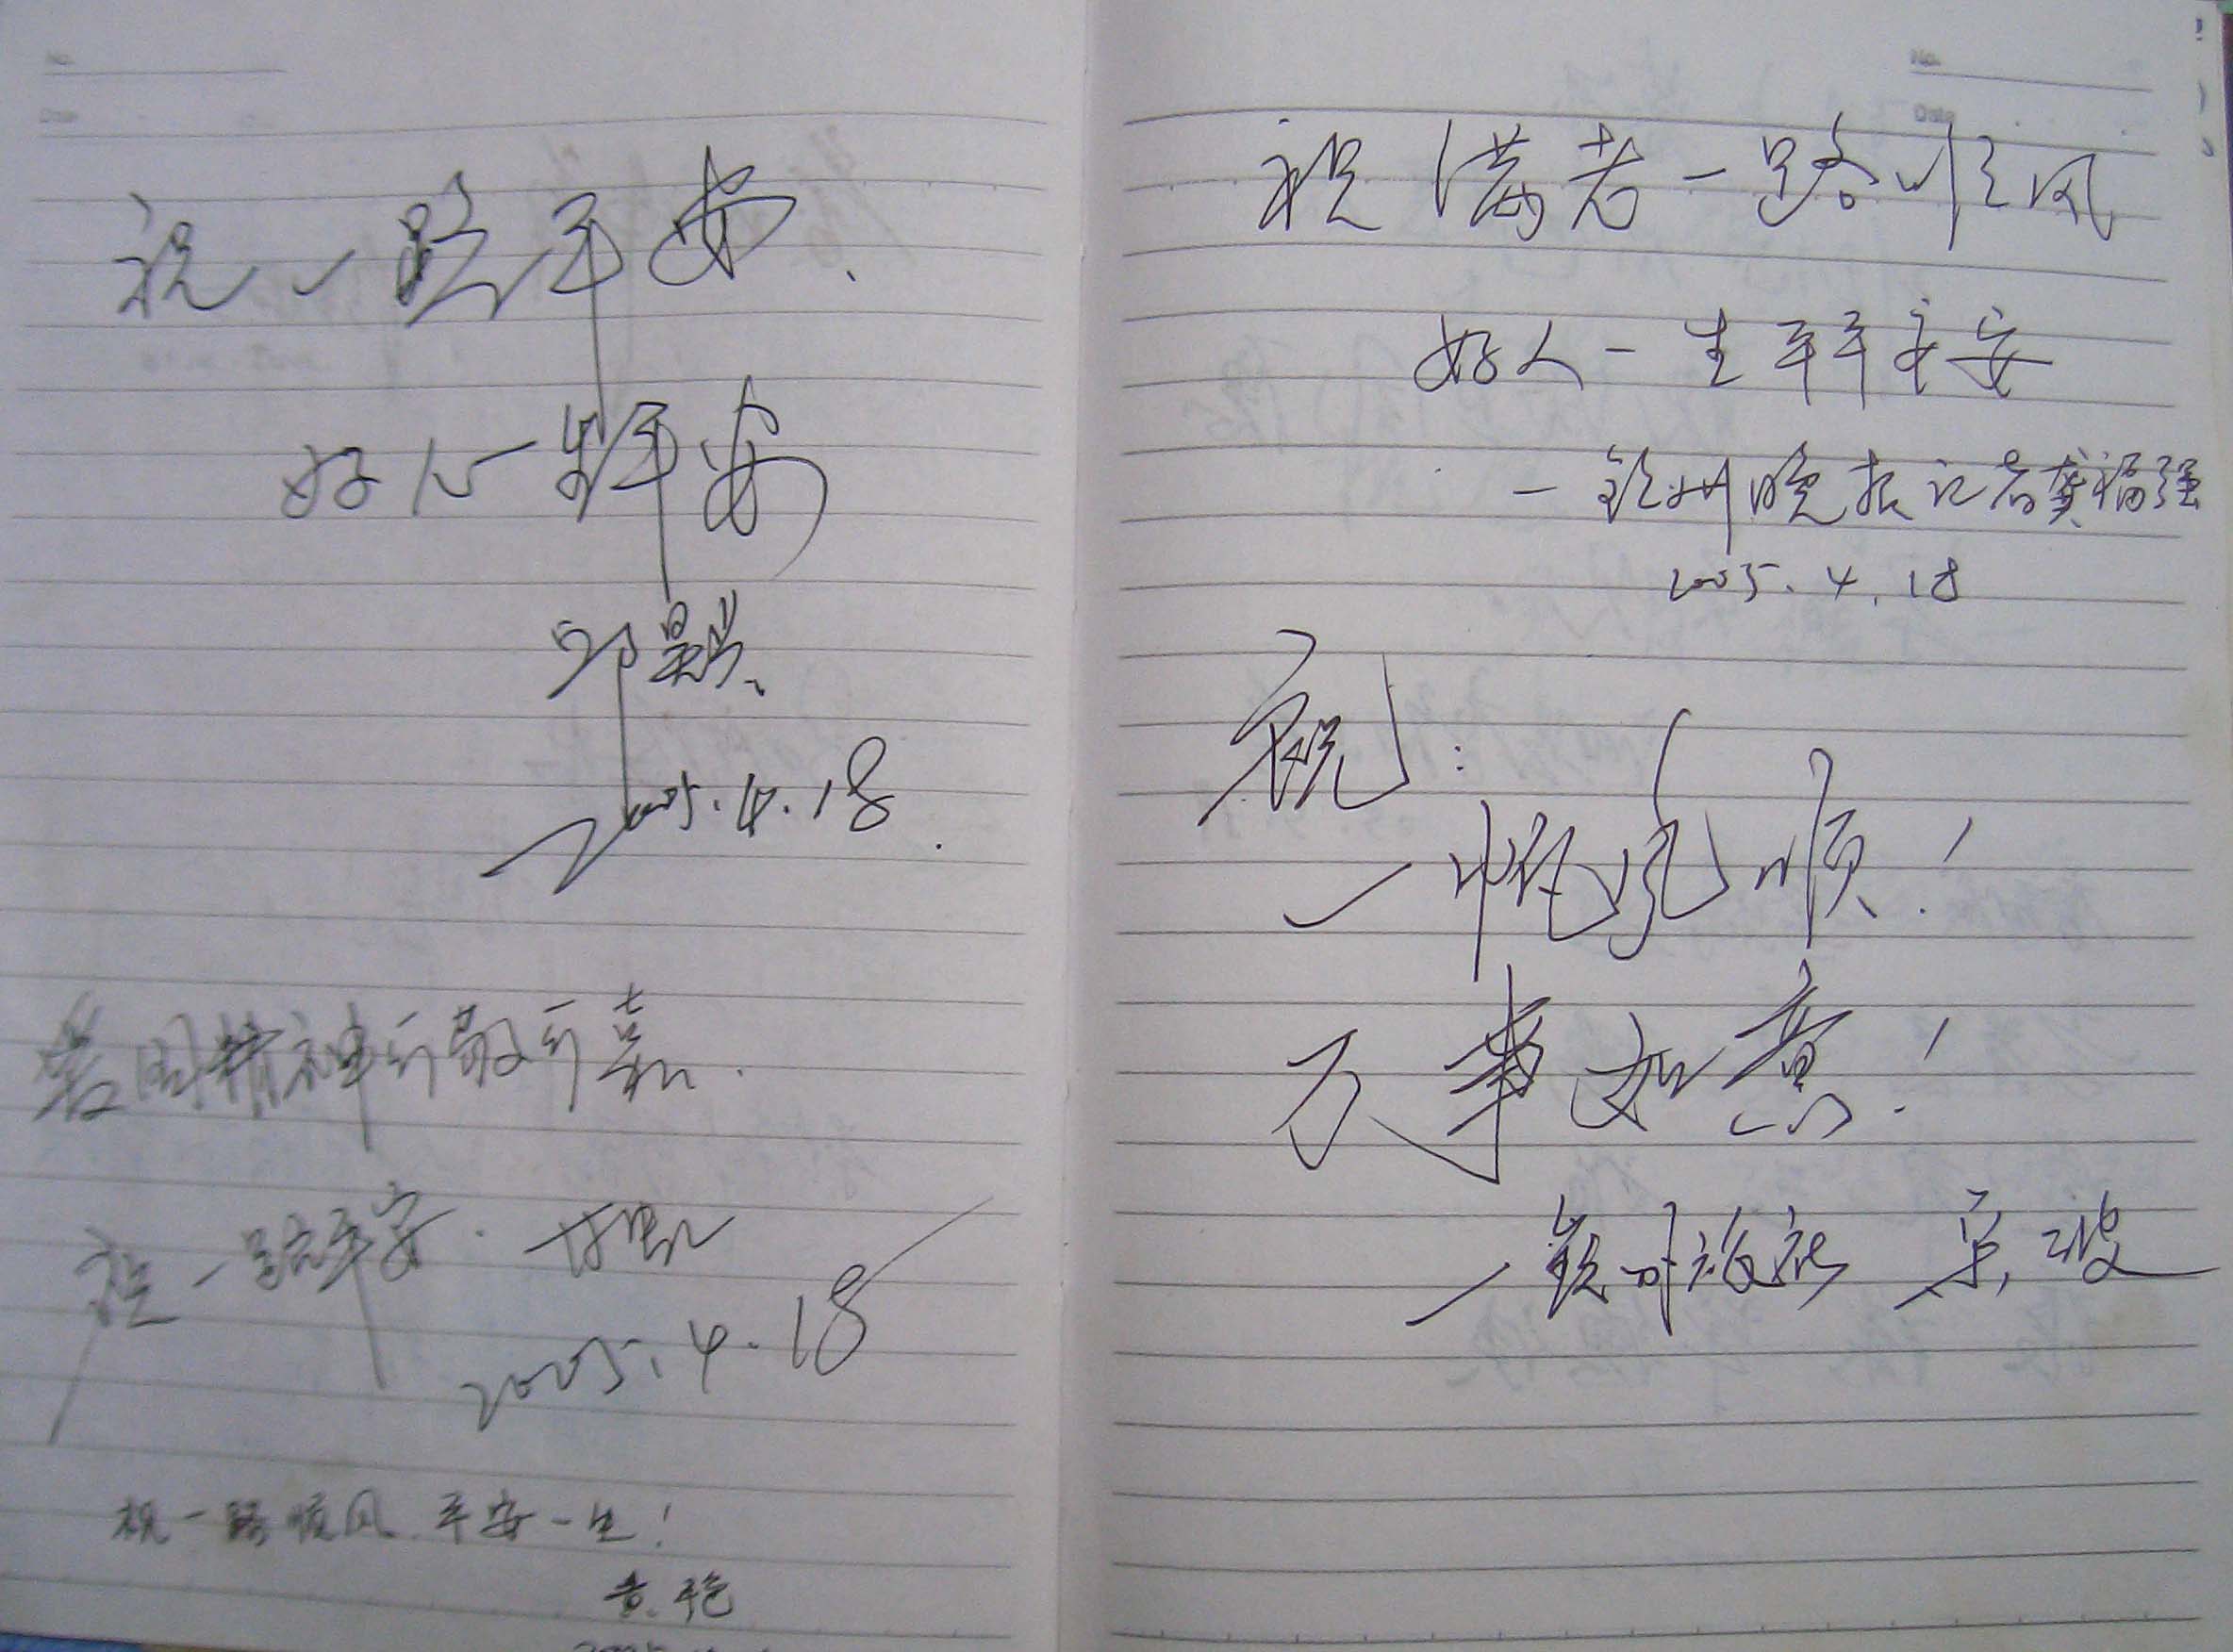 祝一路平安.
好人一生平安
2005.4.18.
精神可敬可嘉.
祝一路平安.
2005.4.18
祝一路顺风 平安一生!
黄艳
祝满老一路顺风
好人一生平平安安
—钦州晚报记者龚福强
2005.4.18
祝:
一帆风顺!
万事如意!
—钦州